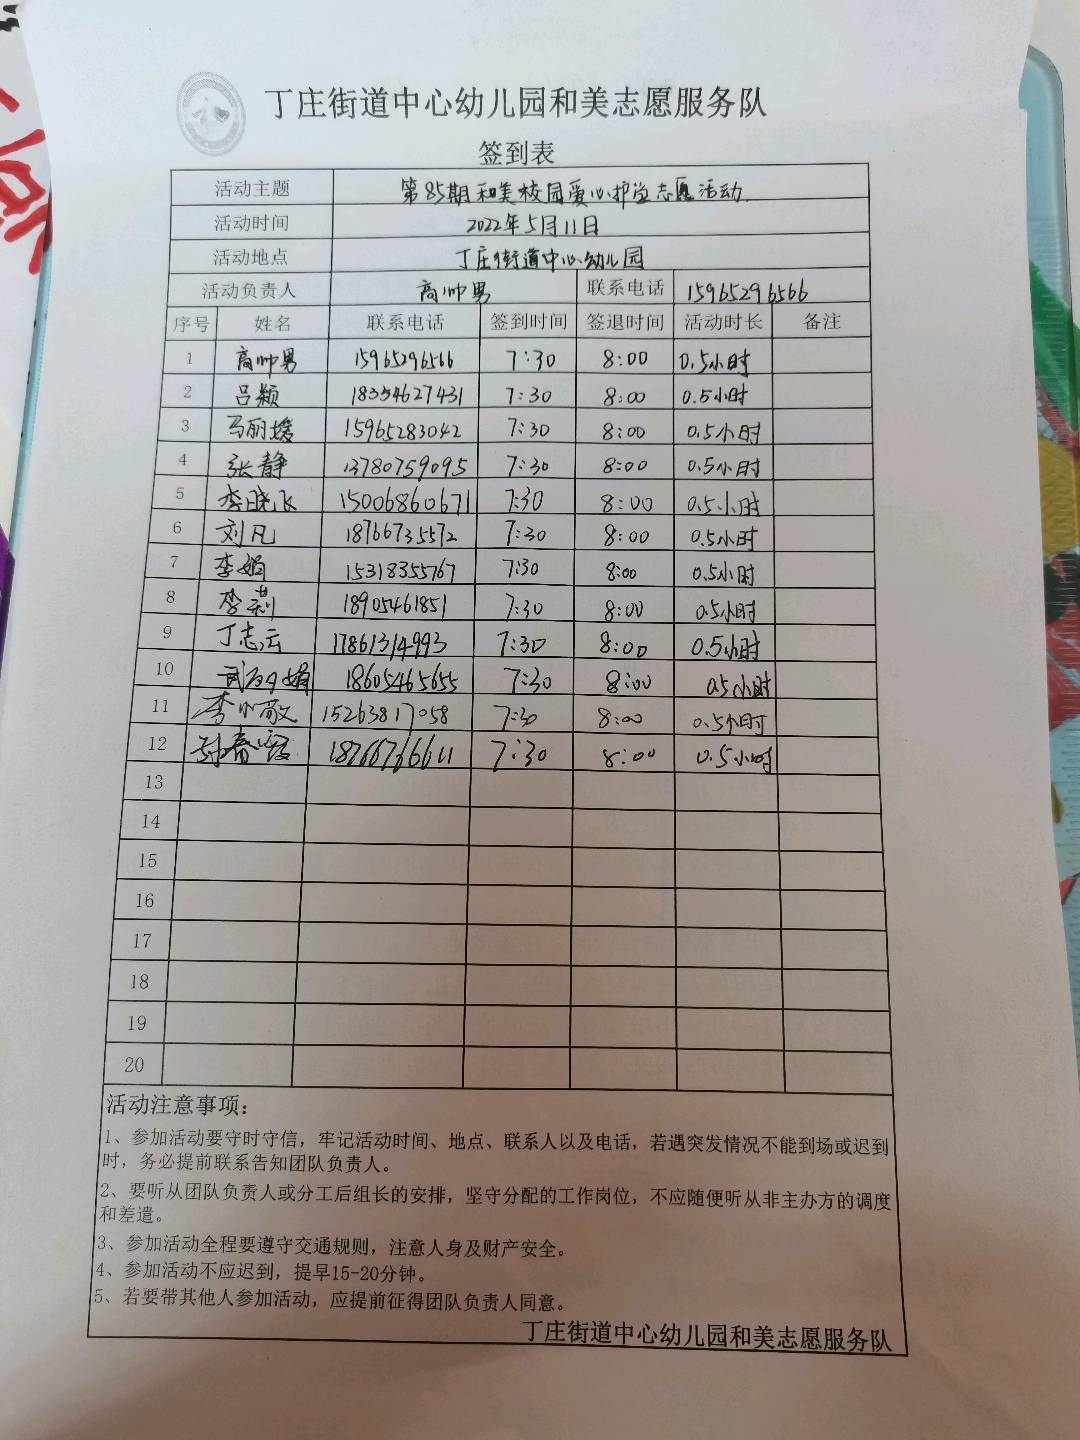 丁庄街道中心幼儿园和美志愿服务队
签到表
活动主题 第85期和美校园爱心护学志愿活动
活动时间 2022年5月11日
活动地点 丁庄街道中心幼儿园
活动负责人 高帅男 联系电话 15965296566
序号 姓名 联系电话 签到时间 签退时间 活动时长 备注
1 高帅男 15965296566 7:30 8:00 0.5小时
2 吕颖 18354627431 7:30 8:00 0.5小时
3 马丽媛 15965283042 7:30 8:00 0.5小时
4 张静 13780759095 7:30 8:00 0.5小时
5 李晓飞 15006860671 7:30 8:00 0.5小时
6 刘凡 18766735572 7:30 8:00 0.5小时
7 李娟 15318355767 7:30 8:00 0.5小时
8 李莉 18905461851 7:30 8:00 0.5小时
9 丁志云 17861314993 7:30 8:00 0.5小时
10 18605465655 7:30 8:00 0.5小时
11 李小敬 15263817058 7:30 8:00 0.5小时
12 孙春霞 18766736611 7:30 8:00 0.5小时
13
14
15
16
17
18
19
20
活动注意事项：
1、参加活动要守时守信，牢记活动时间、地点、联系人以及电话，若遇突发情况不能到场或迟到
时，务必提前联系告知团队负责人。
2、要听从团队负责人或分工后组长的安排，坚守分配的工作岗位，不应随便听从非主办方的调度
和差遣。
3、参加活动全程要遵守交通规则，注意人身及财产安全。
4、参加活动不应迟到，提早15-20分钟。
5、若要带其他人参加活动，应提前征得团队负责人同意。
丁庄街道中心幼儿园和美志愿服务队